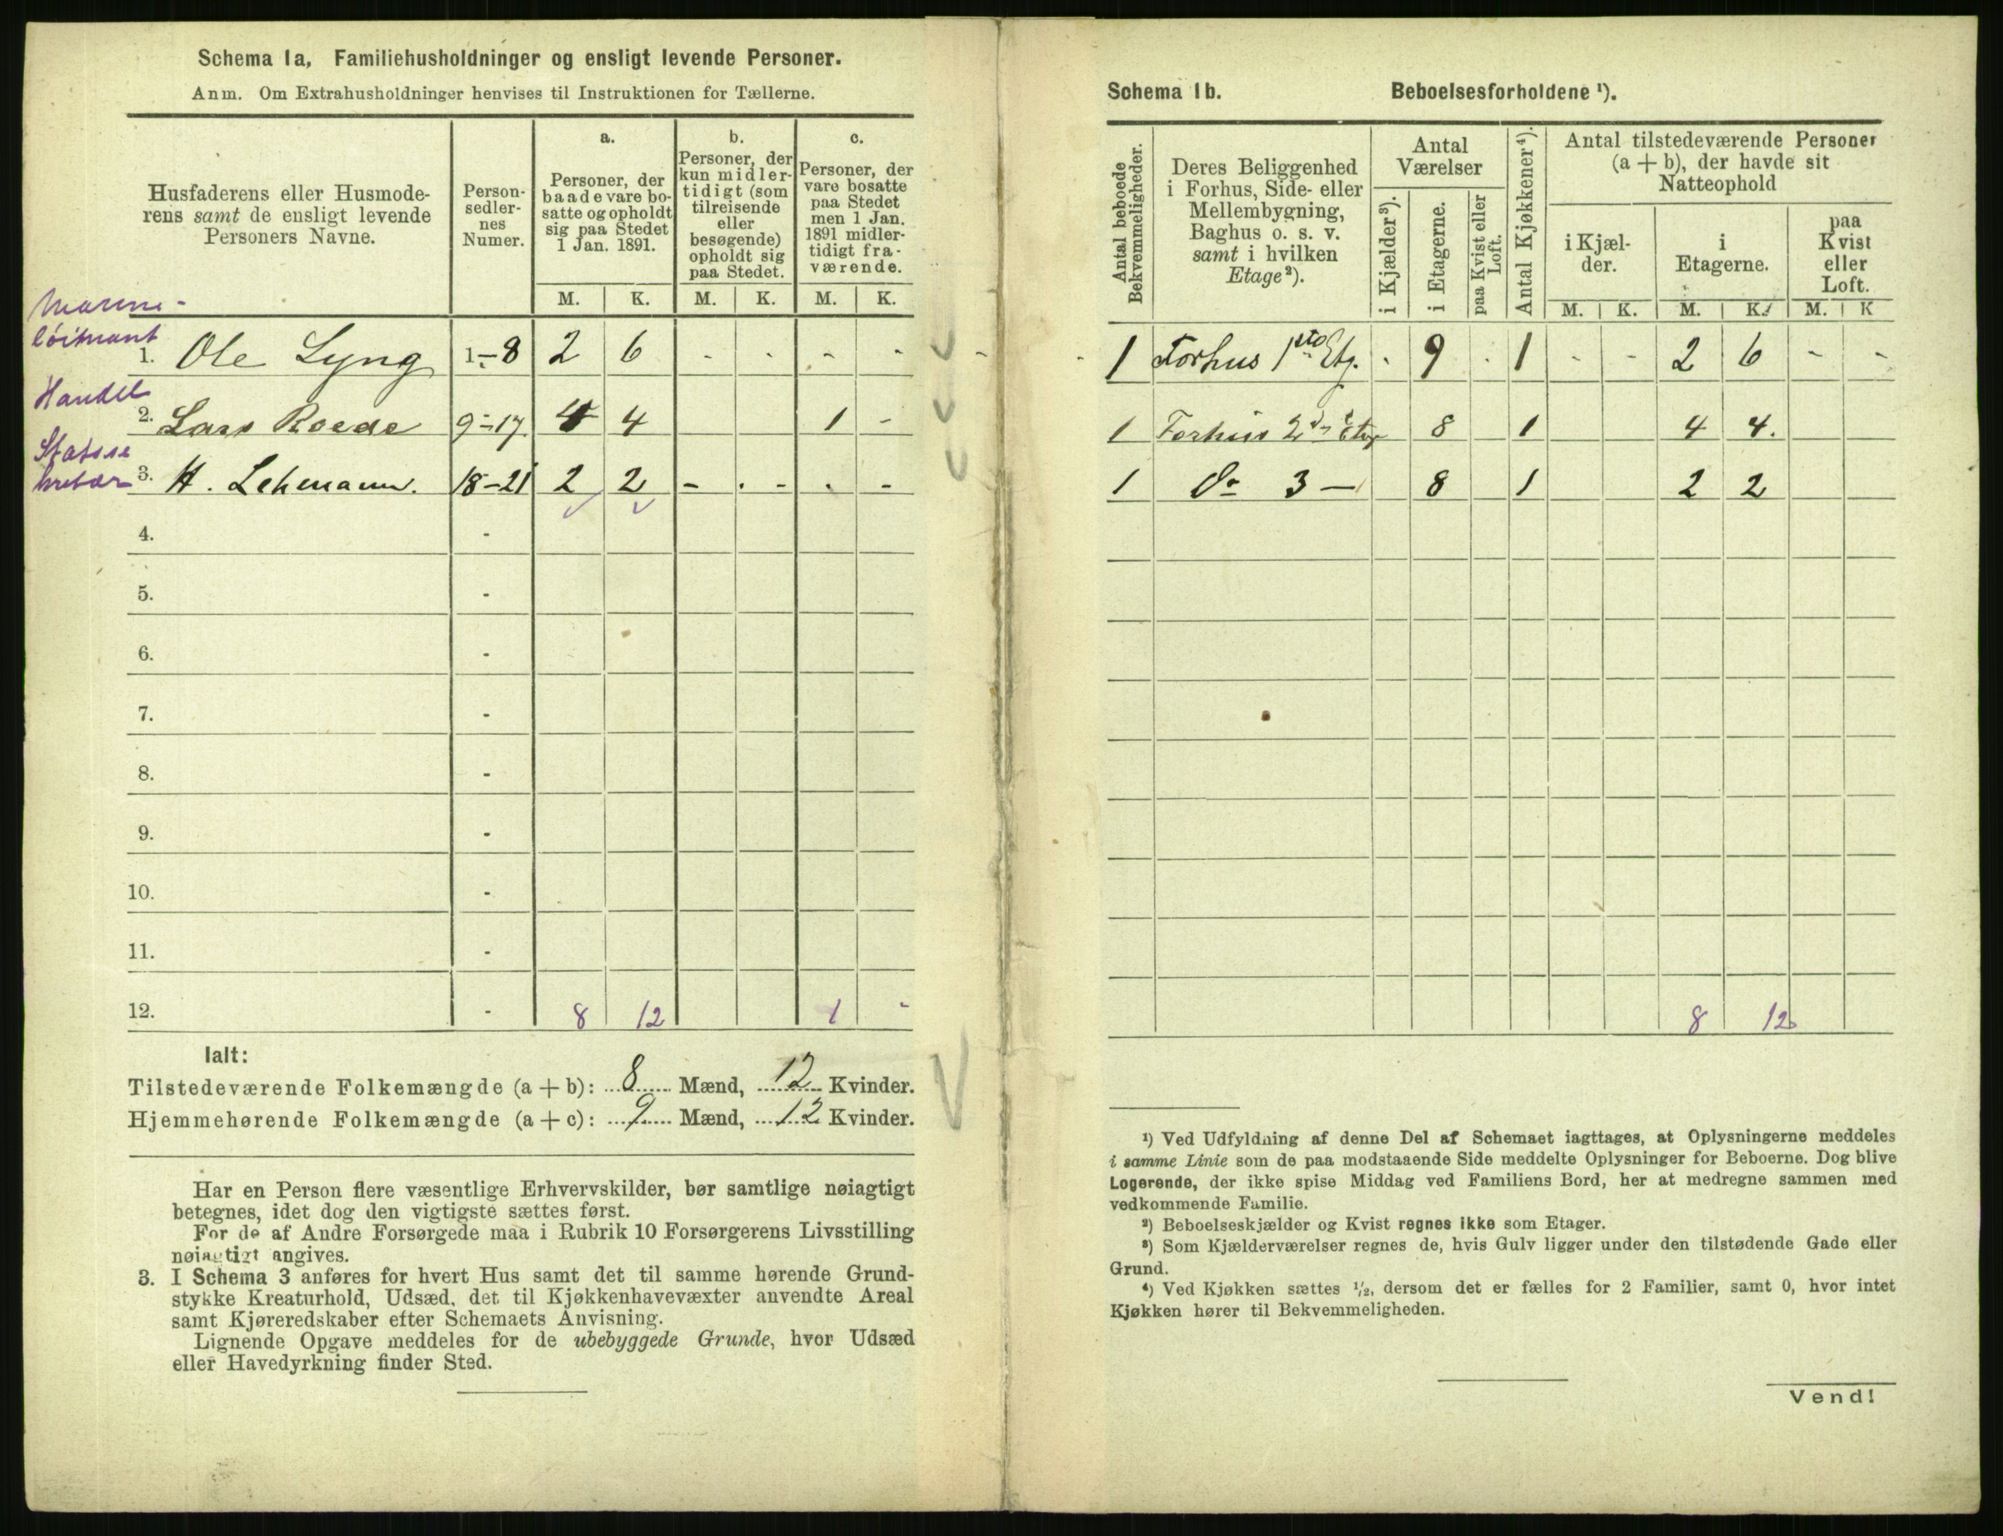 Schema 1a, Familiehusholdninger og ensligt levende Personer.
Anm. Om Extrahusholdninger henvises til Instruktionen for Tællerne.
Husfaderens eller Husmoderens samt de ensligt levende Personers Navne.
Personsedlernes Numer.
a. Personer, der baade vare bosatte og opholdt sig paa Stedet 1 Jan. 1891.
b. Personer, der kun midlertidigt (som tilreisende eller besøgende) opholdt sig paa Stedet.
c. Personer, der vare bosatte paa Stedet men 1 Jan. 1891 midlertidigt fraværende.
M. K. M. K. M. K.
Marine-
løitnant
1. Ole Lyng 1-8 2 6 - - - -
Handel
2. Lars Roede 9-17 4 4 1 -
Statsse
kretær
3. H. Lehmann. 18-21 2 2 - - - -
4. -
5. -
6. -
7. -
8. -
9. -
10. -
11. -
12. - 8 12 1 -
Ialt:
Tilstedeværende Folkemængde (a + b): 8 Mænd, 12 Kvinder.
Hjemmehørende Folkemængde (a + c): 9 Mænd, 12 Kvinder.
Har en Person flere væsentlige Erhvervskilder, bør samtlige nøiagtigt
betegnes, idet dog den vigtigste sættes først.
For de af Andre Forsørgede maa i Rubrik 10 Forsørgerens Livsstilling
nøiagtigt angives.
3. I Schema 3 anføres for hvert Hus samt det til samme hørende Grund-
stykke Kreaturhold, Udsæd, det til Kjøkkenhavevæxter anvendte Areal
samt Kjøreredskaber efter Schemaets Anvisning.
Lignende Opgave meddeles for de ubebyggede Grunde, hvor Udsæd
eller Havedyrkning finder Sted.
Schema 1b. Beboelsesforholdene ¹).
Antal beboede Bekvemmeligheder.
Deres Beliggenhed i Forhus, Side- eller Mellembygning, Baghus o. s. v. samt i hvilken Etage²).
Antal Værelser
i Kjælder³).
i Etagerne.
paa Kvist eller Loft.
Antal Kjøkkener⁴).
Antal tilstedeværende Personer (a + b), der havde sit Natteophold
i Kjælder.
i Etagerne.
paa Kvist eller Loft.
M. K. M. K. M. K
1 Forhus 1ste Etg. - 9 - 1 - - 2 6 - -
1 Forhus 2den Etg 8 1 4 4.
1 Do 3 — 8 1 2 2
8 12
¹) Ved Udfyldning af denne Del af Schemaet iagttages, at Oplysningerne meddeles
i samme Linie som de paa modstaaende Side meddelte Oplysninger for Beboerne. Dog blive
Logerende, der ikke spise Middag ved Familiens Bord, her at medregne sammen med
vedkommende Familie.
²) Beboelseskjælder og Kvist regnes ikke som Etager.
³) Som Kjælderværelser regnes de, hvis Gulv ligger under den tilstødende Gade eller
Grund.
⁴) Ved Kjøkken sættes ½, dersom det er fælles for 2 Familier, samt 0, hvor intet
Kjøkken hører til Bekvemmeligheden.
Vend!